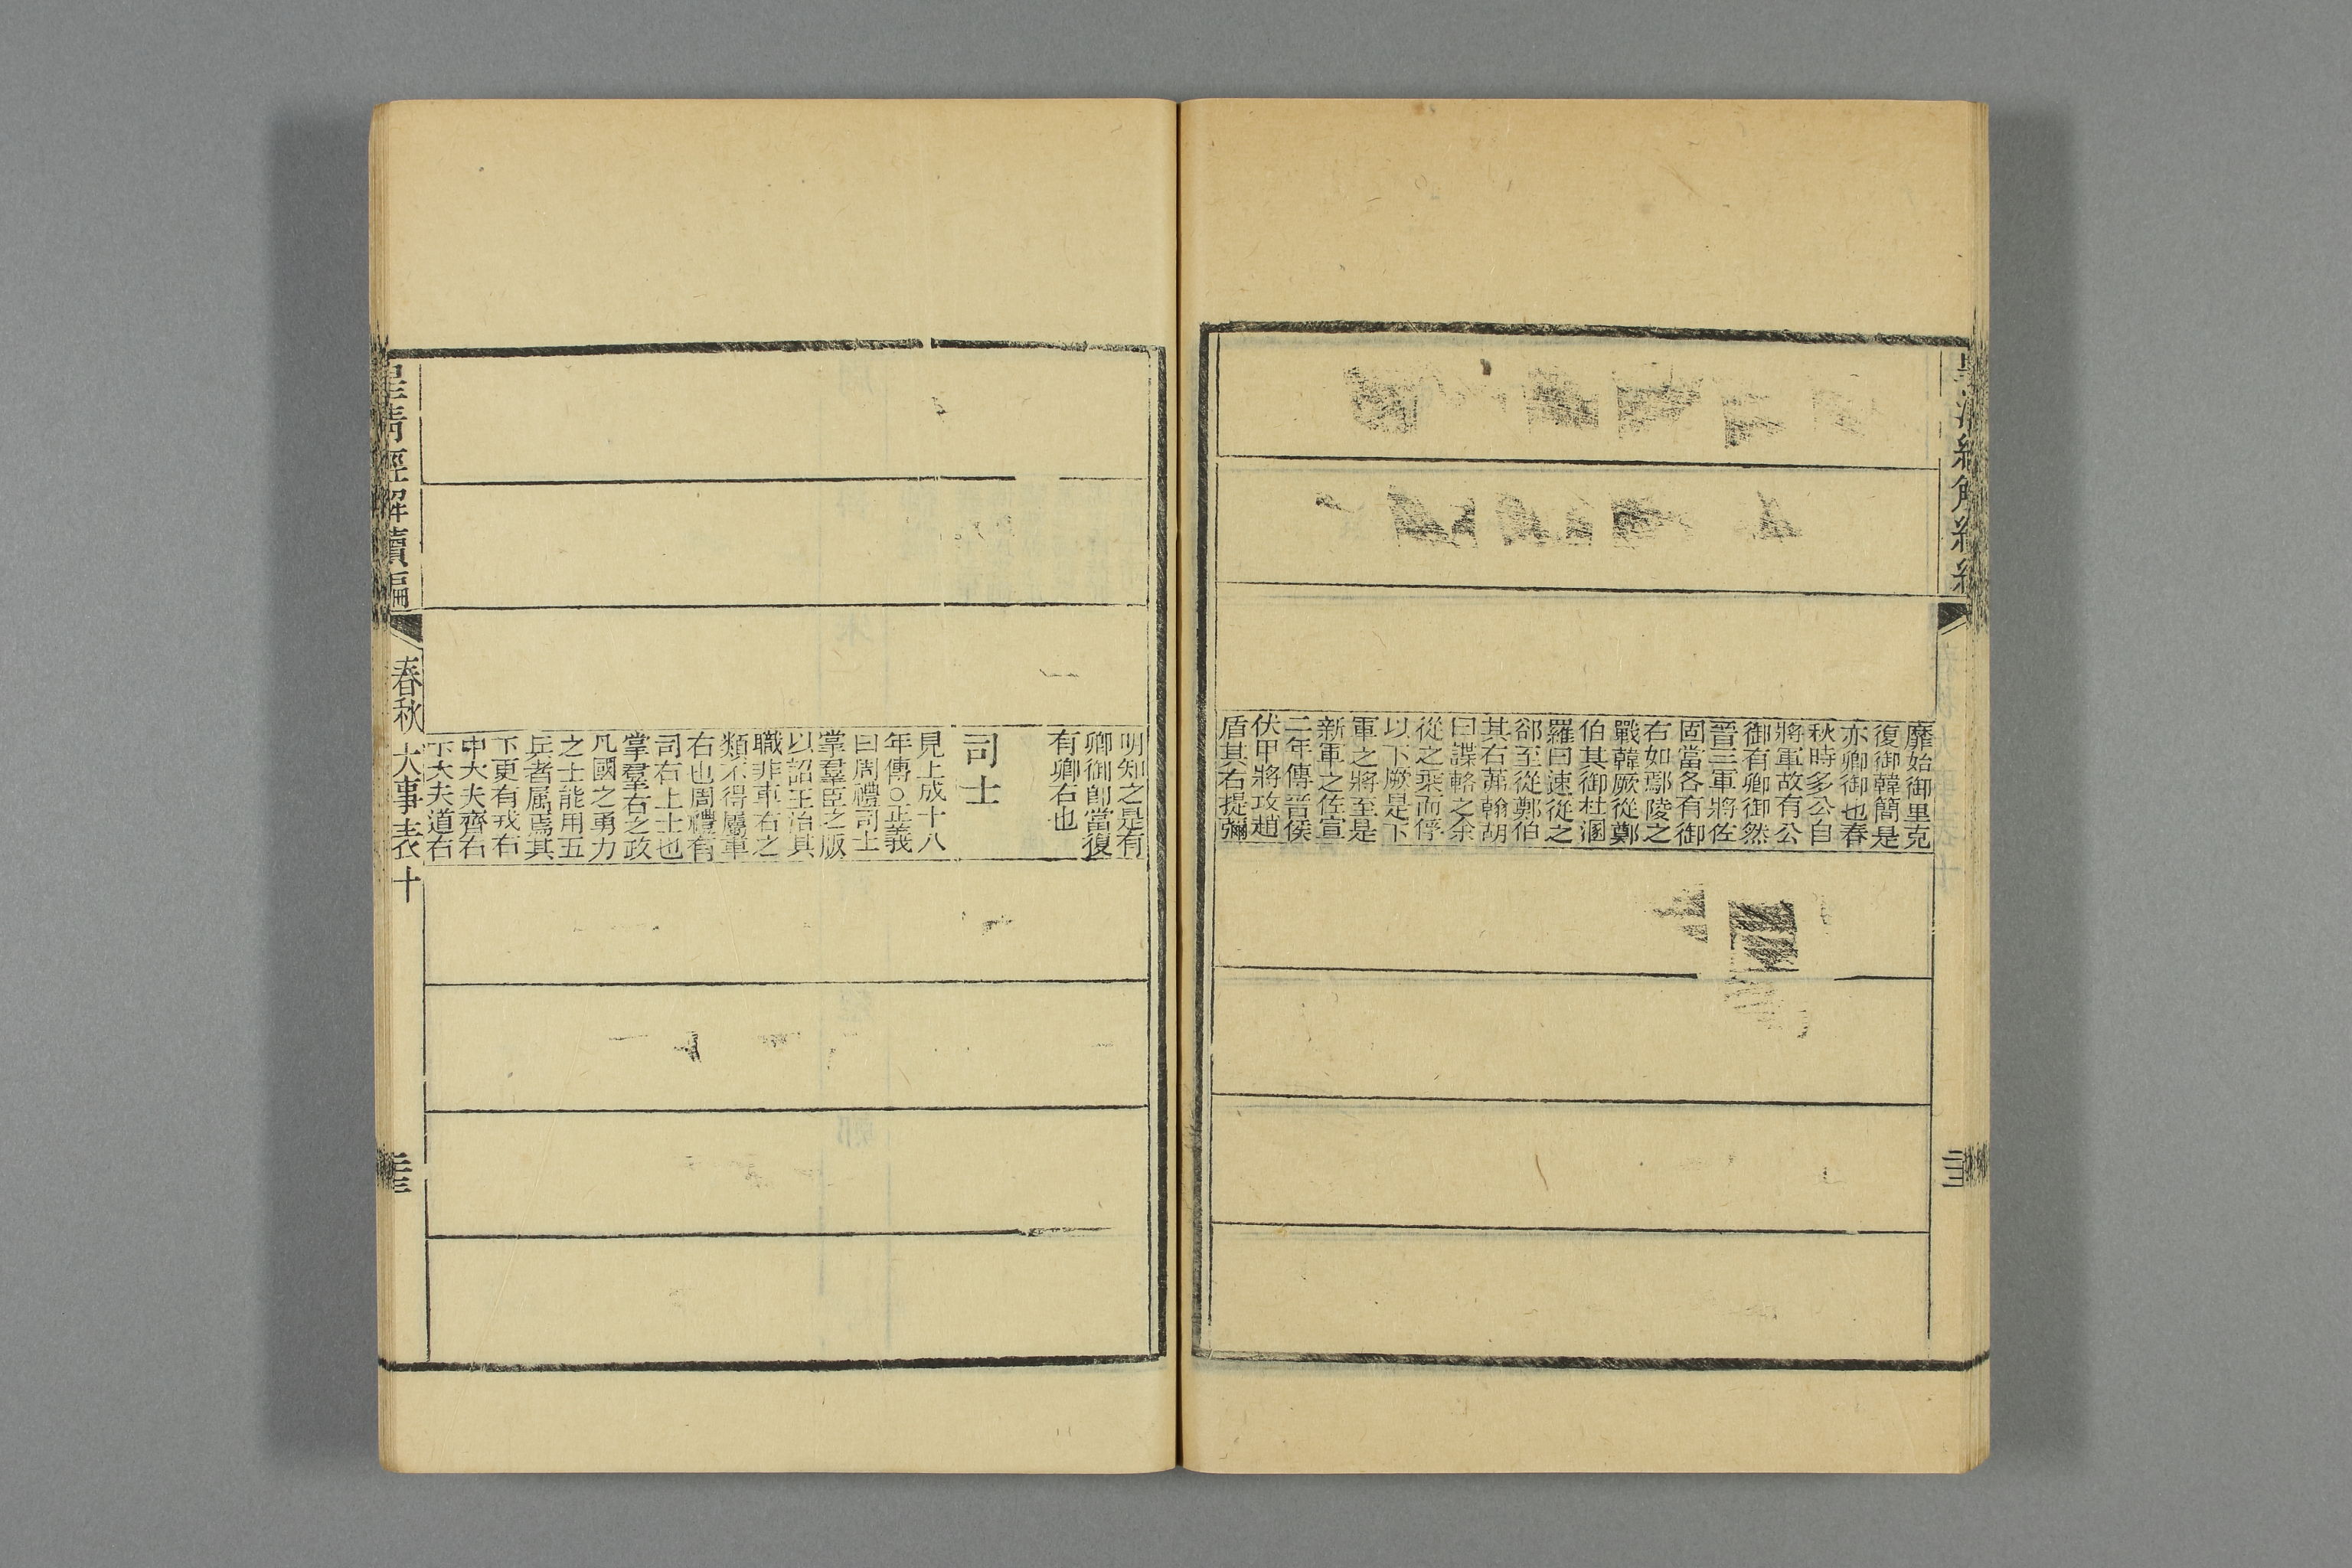 靡始御里克
復御韓簡是
亦卿御也春
秋時多公自
將軍故有公
御有卿御然
晉三軍將佐
固當各有御
右如鄢陵之
戰韓厥從鄭
伯其御杜溷
羅曰速從之
郤至從鄭伯
其右茀翰胡
曰諜輅之余
從之乘而俘
以下厥是下
軍之將至是
新軍之佐宣
二年傳晉侯
伏甲將攻趙
盾其右提彌
明知之是有
卿御卽當復
有卿右也
司士
見上成十八
年傳○正義
曰周禮司士
掌羣臣之版
以詔王治其
職非車右之
類不得屬車
右也周禮有
司右上士也
掌羣右之政
凡國之勇力
之士能用五
兵者屬焉其
下更有戎右
中大夫齊右
下大夫道右
皇清經解續編
春秋大事表十